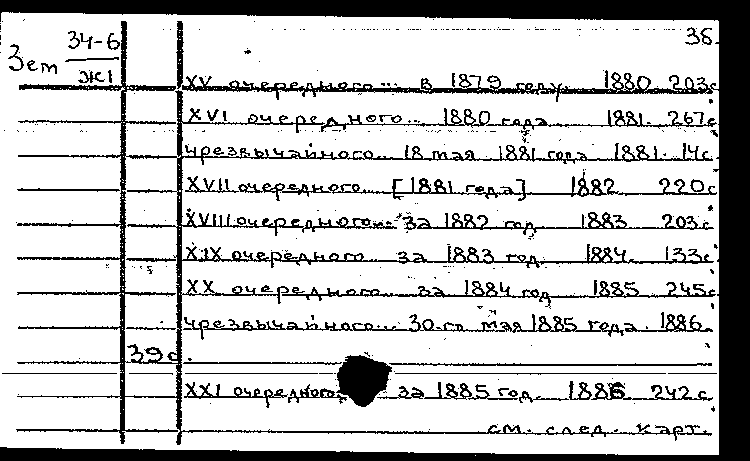 38.
Зем 34-6
Ж1
XV очередного... в 1879 году. 1880 203с
XVI очередного... 1880 года 1881. 267с
чрезвычайного... 18 мая 1881 года 1881. 14с.
XVII очередного... [1881 года] 1882 220с
XVIII очередного... за 1882 год 1883 203с
XIX очередного... за 1883 год. 1884. 133с
XX очередного... за 1884 год 1885 245с
чрезвычайного... 30-го мая 1885 года. 1886.
39с.
XXI очередного за 1885 год. 1886 242с
см. след. карт.